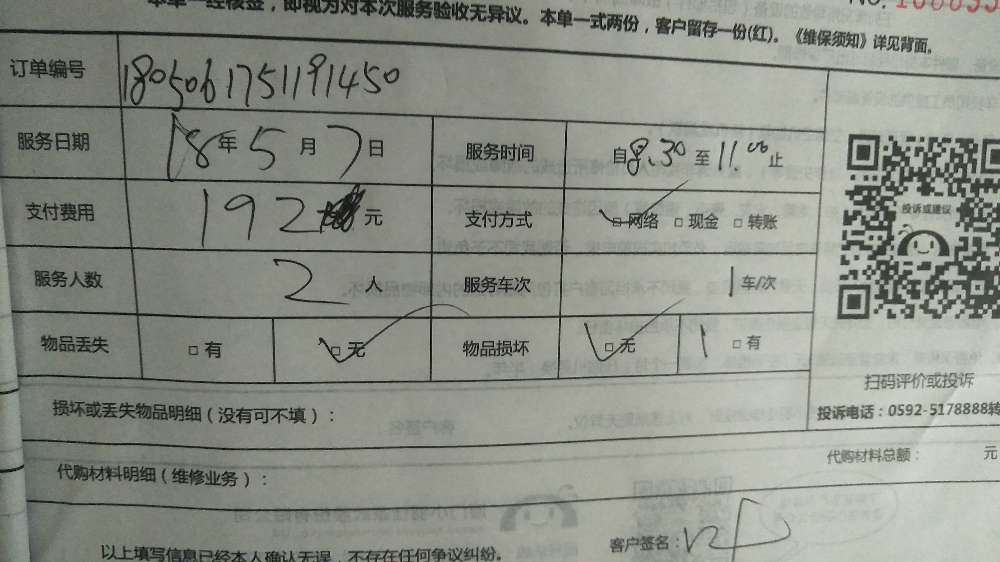 本单一经核签，即视为对本次服务验收无异议。本单一式两份，客户留存一份(红)。《维保须知》详见背面。
NO.
订单编号 1805061751191450
服务日期 18年5月7日 服务时间 自8.30至11.00止
支付费用 192元 支付方式 □网络 □现金 □转账
服务人数 2人 服务车次 1车/次
物品丢失 □有 □无 物品损坏 □无 □有
投诉或建议
扫码评价或投诉
投诉电话：0592-5178888转
损坏或丢失物品明细（没有可不填）：
代购材料明细（维修业务）： 代购材料总额： 元
以上填写信息已经本人确认无误，不存在任何争议纠纷。 客户签名：